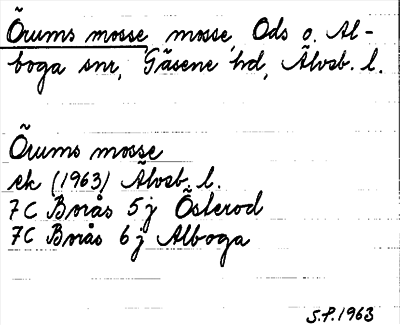 Örums mosse, mosse, Ods o. Al-
boga snr, Gäsene hd, Älvsb. l.
Örums mosse
ek (1963) Älvsb. l.
7C Borås 5j Österod
7C Borås 6j Alboga
S.P. 1963